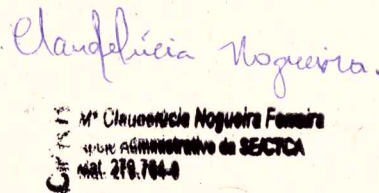 Claudelúcia Nogueira.
Mª Claudelúcia Nogueira Ferreira
Administrativo da SE/CTCA
Mat. 279.764-6